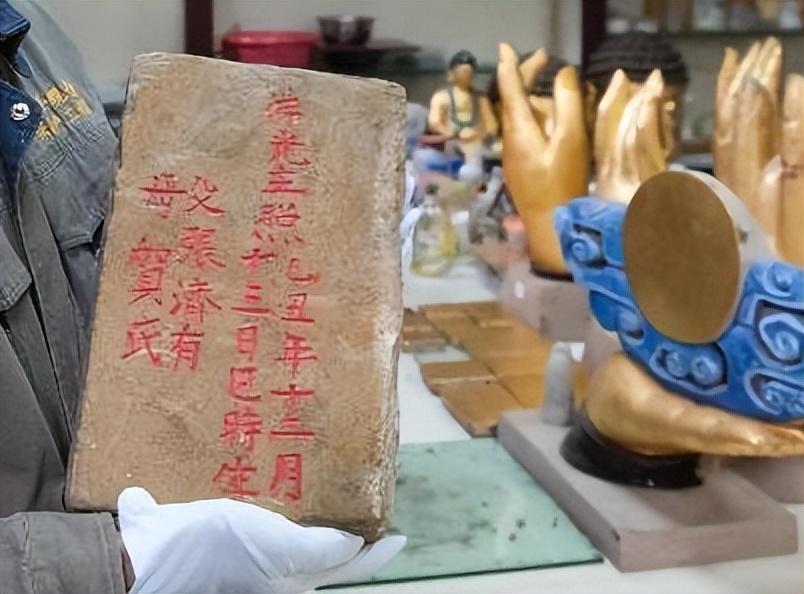 光主照乙丑年十二月
廿三日巳時生
父張濟有
母賀氏